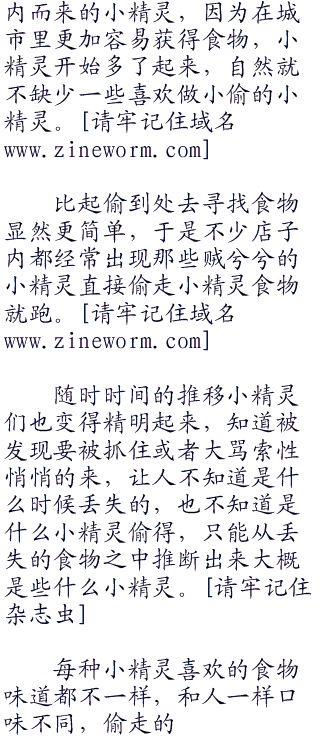 内而来的小精灵，因为在城
市里更加容易获得食物，小
精灵开始多了起来，自然就
不缺少一些喜欢做小偷的小
精灵。[请牢记住域名
www.zineworm.com]
比起偷到处去寻找食物
显然更简单，于是不少店子
内都经常出现那些贼兮兮的
小精灵直接偷走小精灵食物
就跑。[请牢记住域名
www.zineworm.com]
随时时间的推移小精灵
们也变得精明起来，知道被
发现要被抓住或者大骂索性
悄悄的来，让人不知道是什
么时候丢失的，也不知道是
什么小精灵偷得，只能从丢
失的食物之中推断出来大概
是些什么小精灵。[请牢记住
杂志虫]
每种小精灵喜欢的食物
味道都不一样，和人一样口
味不同，偷走的